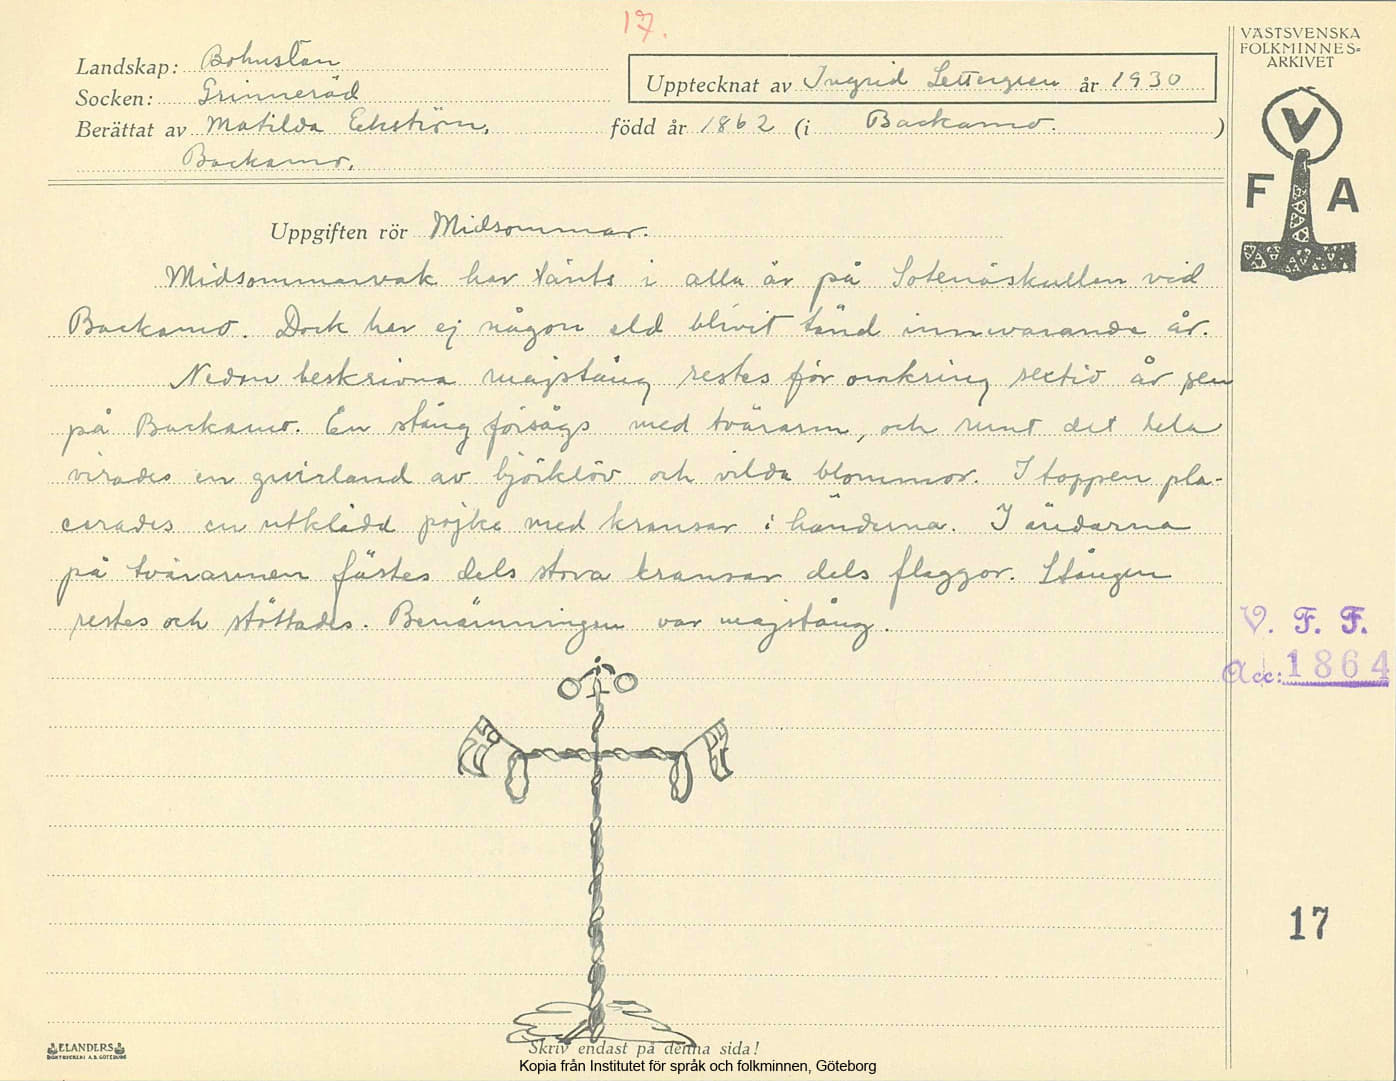 17.
Landskap: Bohuslän
Socken: Grinneröd
Upptecknat av Ingrid Settergren år 1930
Berättat av Matilda Ekström, född år 1862 (i Backamo. )
Backamo.
VÄSTSVENSKA
FOLKMINNES=
ARKIVET
V
F A
Uppgiften rör Midsommar.
Midsommarvak har tänts i alla år på Sotenäskullen vid
Backamo. Dock har ej någon eld blivit tänd innevarande år.
Nedan beskrivna majstång restes för omkring sextio år sen
på Backamo. En stång försågs med tvärarm, och runt det hela
virades en guirland av björklöv och vilda blommor. I toppen pla-
cerades en utklädd pojke med kransar i händerna. I ändarna
på tvärarmen fästes dels stora kransar dels flaggor. Stången
restes och stöttades. Benämningen var majstång.
V. F. F.
Acc: 1864
17
Skriv endast på denna sida!
ELANDERS
BOKTRYCKERI A.B. GÖTEBORG
Kopia från Institutet för språk och folkminnen, Göteborg